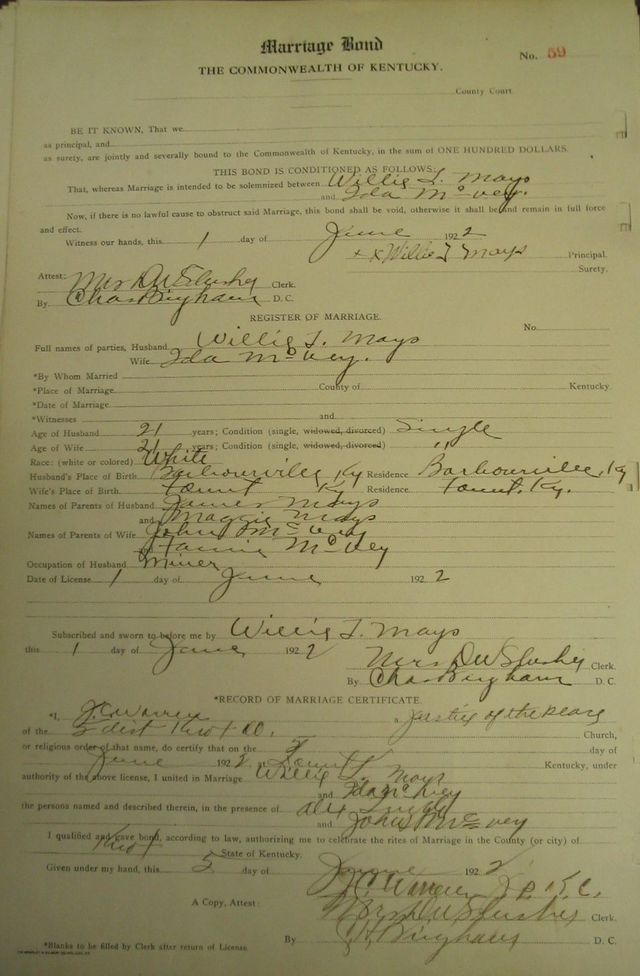 Marriage Bond
No. 59
THE COMMONWEALTH OF KENTUCKY.
County Court.
BE IT KNOWN, That we
as principal, and
as surety, are jointly and severally bound to the Commonwealth of Kentucky, in the sum of ONE HUNDRED DOLLARS.
THIS BOND IS CONDITIONED AS FOLLOWS:
That, whereas Marriage is intended to be solemnized between Willis L. Mays
and Ida McVey.
Now, if there is no lawful cause to obstruct said Marriage, this bond shall be void, otherwise it shall be and remain in full force
and effect.
Witness our hands, this 1 day of June 1922
x x Willie L Mays Principal.
Surety.
Attest:
Mrs D W Slusher Clerk.
By Chas Bingham D. C.
REGISTER OF MARRIAGE.
No.
Full names of parties, Husband Willis L. Mays
Wife Ida McVey.
*By Whom Married
*Place of Marriage County of Kentucky.
*Date of Marriage
*Witnesses and
Age of Husband 21 years; Condition (single, widowed, divorced) Single
Age of Wife 21 years; Condition (single, widowed, divorced) "
Race: (white or colored) White
Husband's Place of Birth Barbourville, Ky Residence Barbourville, Ky
Wife's Place of Birth Ky Residence Ky.
Names of Parents of Husband James Mays
and Maggie Mays
Names of Parents of Wife John McVey
and Fannie McVey
Occupation of Husband Miner
Date of License 1 day of June 1922
Subscribed and sworn to before me by Willis L. Mays
this 1 day of June 1922
Mrs D W Slusher Clerk.
By Chas Bingham D. C.
*RECORD OF MARRIAGE CERTIFICATE.
*I, J. C. Warren a Justice of the Peace
of the 5 dist Knox Co. Church,
or religious order of that name, do certify that on the 5 day of
June 1922 in Kentucky, under
authority of the above license, I united in Marriage Willis L. Mays
and Ida McVey
the persons named and described therein, in the presence of Alex
and John McVey
I qualified and gave bond, according to law, authorizing me to celebrate the rites of Marriage in the County (or city) of
Knox State of Kentucky.
Given under my hand, this 5 day of June 1922
J. C. Warren J. P. K. C.
A Copy, Attest: Mrs D W Slusher Clerk.
By Bingham D. C.
*Blanks to be filled by Clerk after return of License.